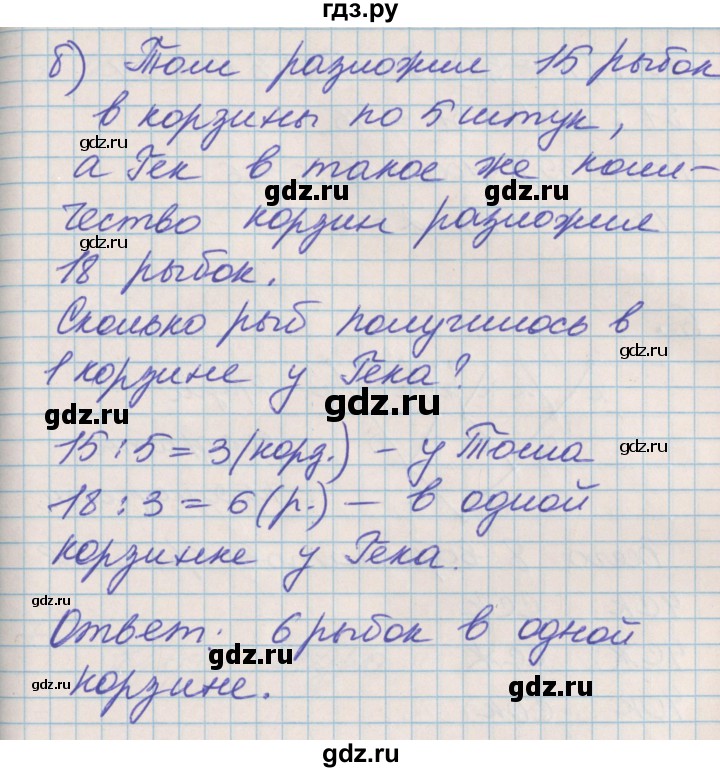 гдз.ру
б) Том разложил 15 рыбок
в корзины по 5 штук,
gdz.ru
а Гек в такое же коли-
gdz.ru gdz.ru
чество корзин разложил
gdz.ru
18 рыбок.
Сколько рыб получилось в
gdz.ru
1 корзине у Гека?
gdz.ru gdz.ru
15 : 5 = 3 (корз.) - у Тома
gdz.ru
18 : 3 = 6 (р.) - в одной
gdz.ru
корзинке у Гека.
gdz.ru
Ответ: 6 рыбок в одной
gdz.ru
корзине.
gdz.ru gdz.ru
gdz.ru